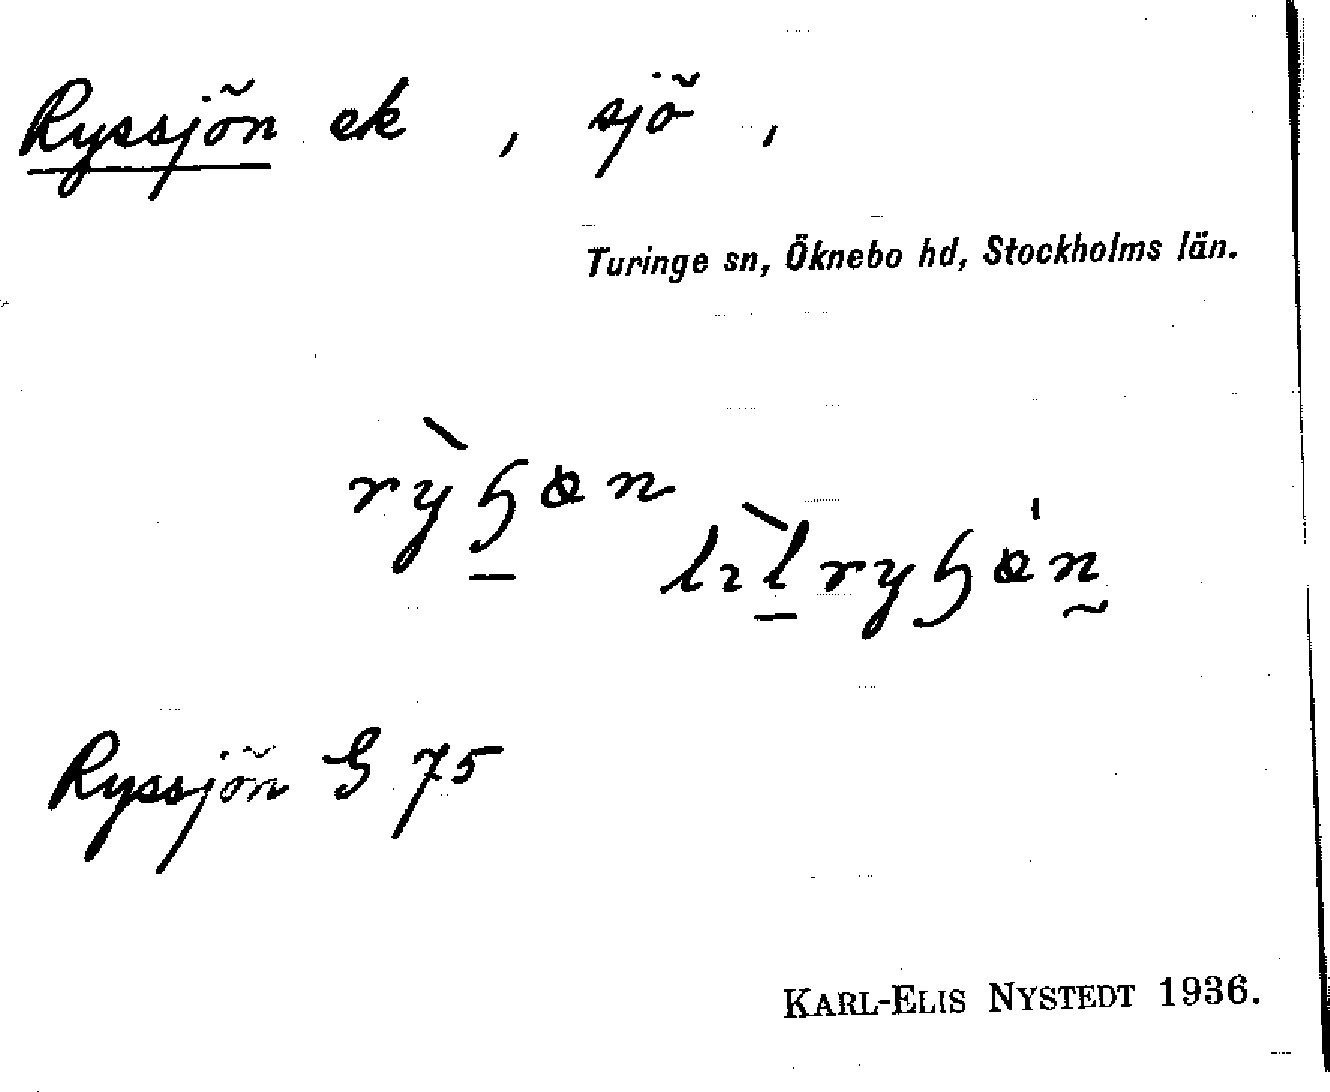 Ryssjön ek , sjö ,
Turinge sn, Öknebo hd, Stockholms län.
Ryssjön G 75
KARL-ELIS NYSTEDT 1936.